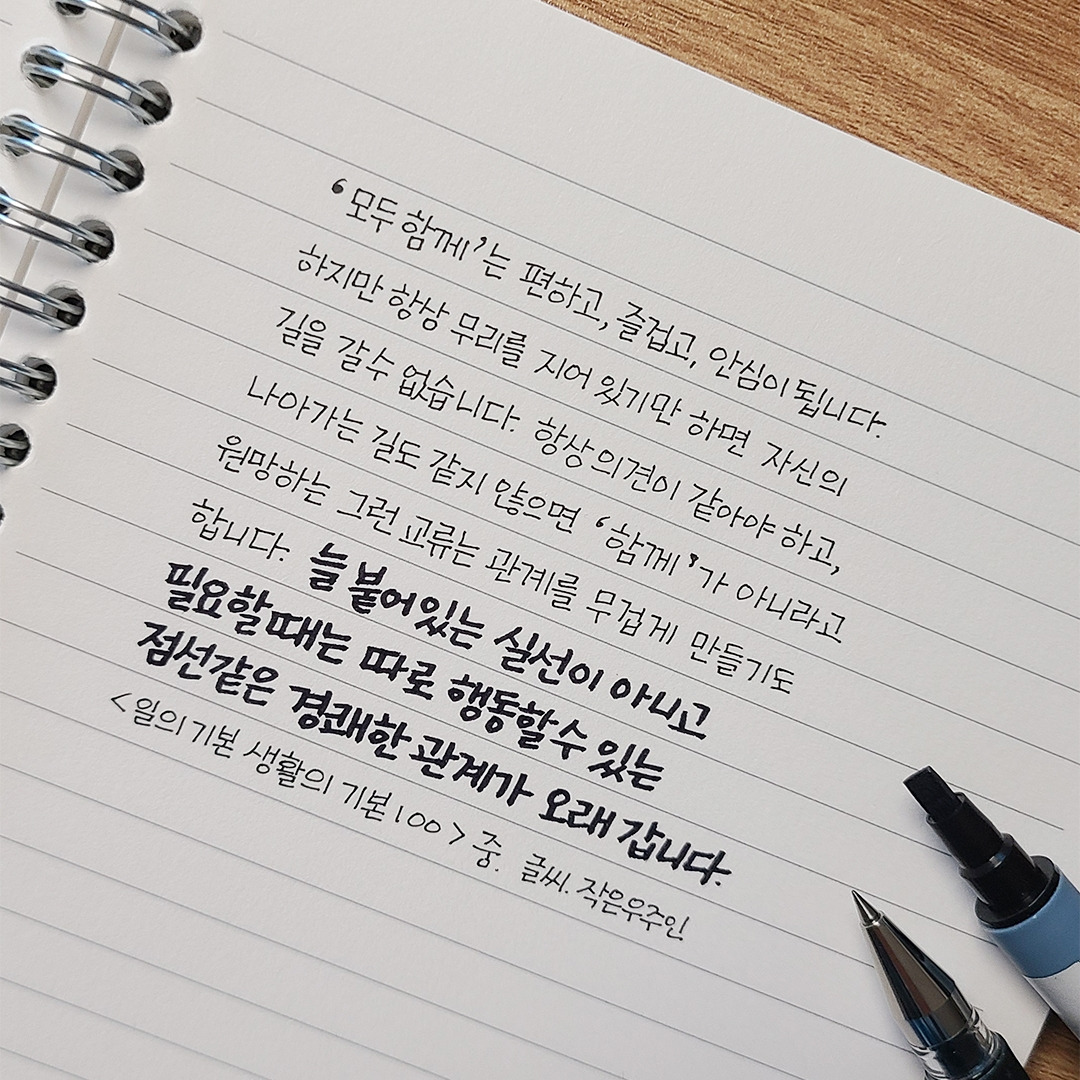 ‘모두 함께’는 편하고, 즐겁고, 안심이 됩니다.
하지만 항상 무리를 지어 있기만 하면 자신의
길을 갈 수 없습니다. 항상 의견이 같아야 하고,
나아가는 길도 같지 않으면 ‘함께’가 아니라고
원망하는 그런 교류는 관계를 무겁게 만들기도
합니다. 늘 붙어있는 실선이 아니고
필요할 때는 따로 행동할 수 있는
점선같은 경쾌한 관계가 오래 갑니다.
<일의 기본 생활의 기본 100> 중. 글씨. 작은우주인